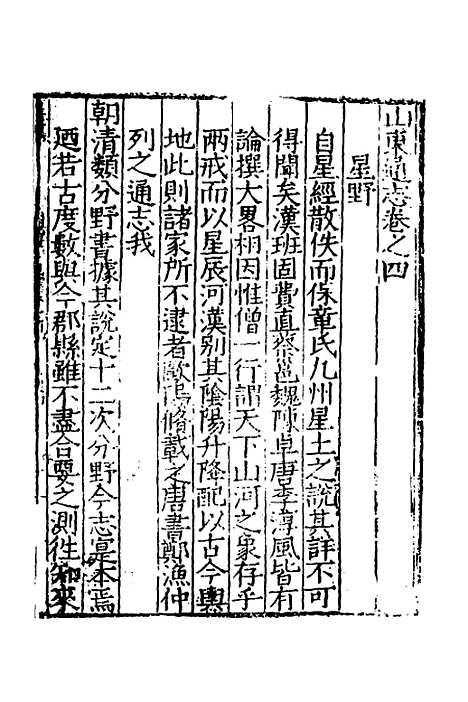 山東通志卷之四
星野
自星經散佚而保章氏九州星土之說其詳不可
得聞矣漢班固費直蔡邕魏陳卓唐李淳風皆有
論撰大畧相因惟僧一行謂天下山河之象存乎
兩戒而以星辰河漢别其陰陽升降配以古今輿
地此則諸家所不逮者歐陽脩載之唐書鄭漁仲
列之通志我
朝清類分野書據其說定十二次分野今志寔本焉
廼若古度數與今郡縣雖不盡合要之測徃知來